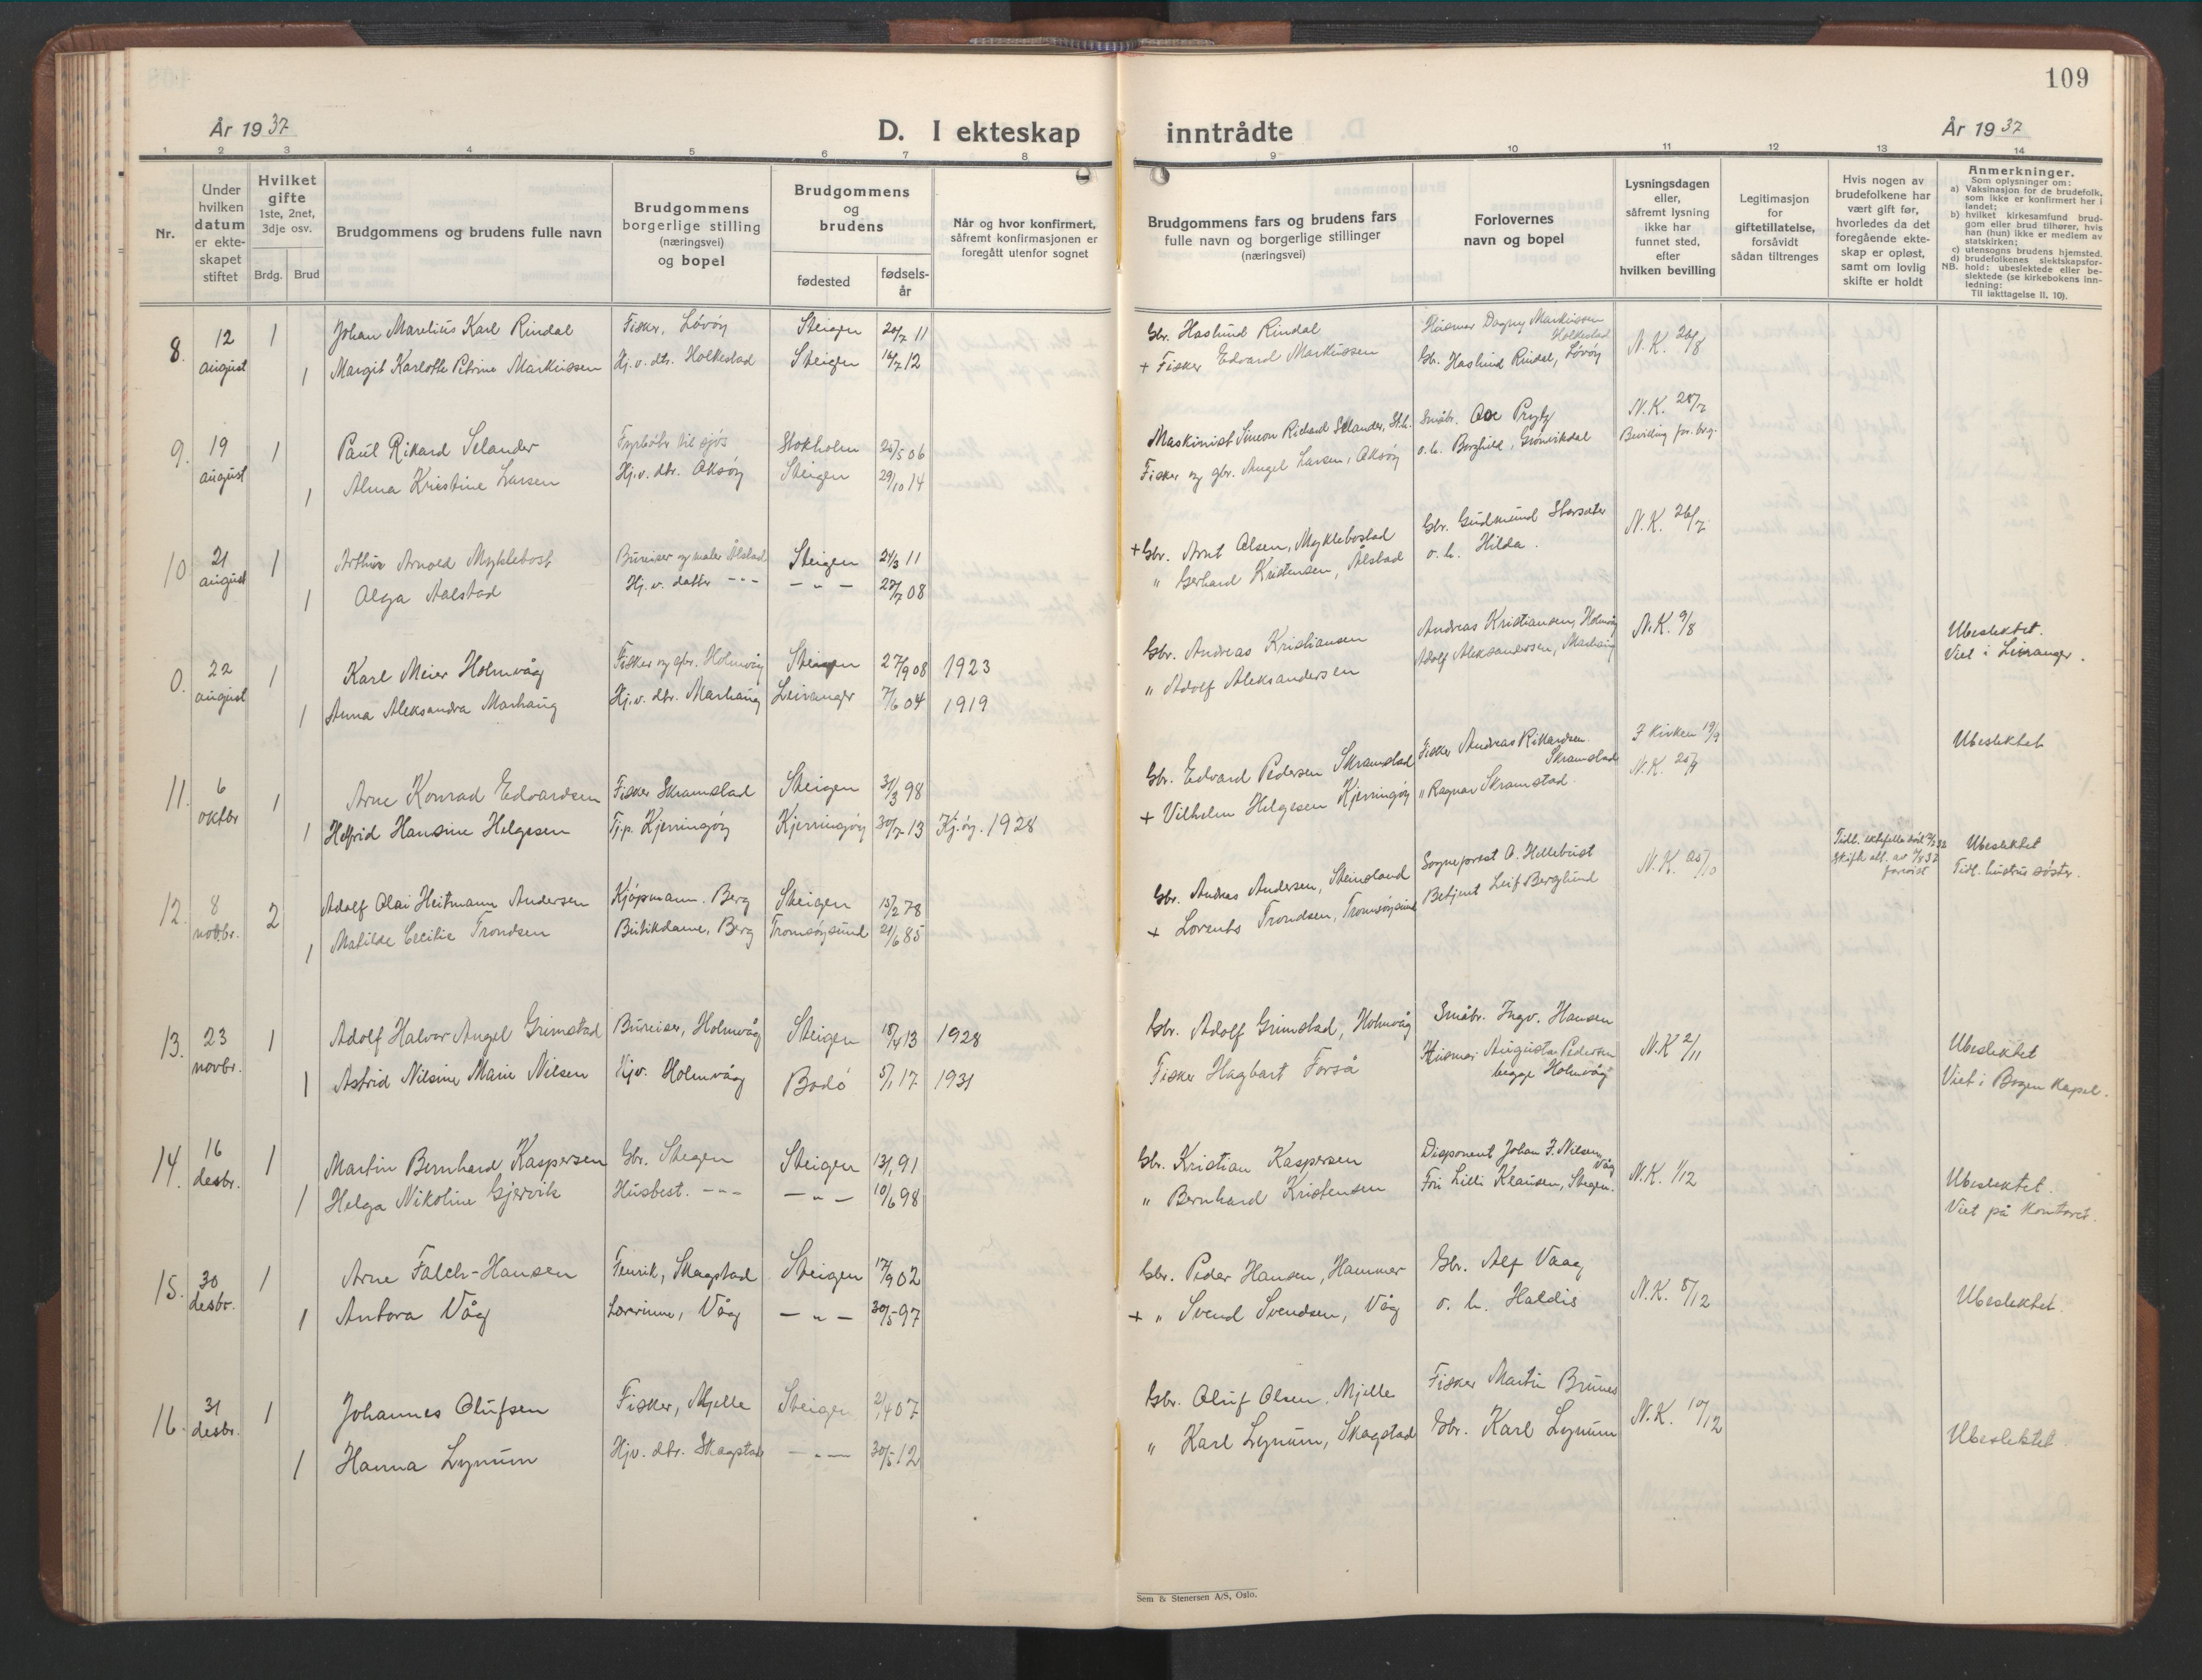 109
År 1937
D. I ekteskap inntrådte
År 1937
1 2 3 4 5 6 7 8 9 10 11 12 13 14
Nr.
Under hvilken datum er ekteskapet stiftet
Hvilket gifte 1ste, 2net, 3dje osv.
Brdg. Brud
Brudgommens og brudens fulle navn
Brudgommens borgerlige stilling (næringsvei) og bopel
Brudgommens og brudens
fødested
fødselsår
Når og hvor konfirmert, såfremt konfirmasjonen er foregått utenfor sognet
Brudgommens fars og brudens fars fulle navn og borgerlige stillinger (næringsvei)
Forlovernes navn og bopel
Lysningsdagen eller, såfremt lysning ikke har funnet sted, efter hvilken bevilling
Legitimasjon for giftetillatelse, forsåvidt sådan tiltrenges
Hvis nogen av brudefolkene har vært gift før, hvorledes da det foregående ekteskap er opløst, samt om lovlig skifte er holdt
Anmerkninger.
Som oplysninger om:
a) Vaksinasjon for de brudefolk, som ikke er konfirmert her i landet;
b) hvilket kirkesamfund brudgom eller brud tilhører, hvis han (hun) ikke er medlem av statskirken;
c) utensogns brudens hjemsted.
d) brudefolkenes slektskapsforhold: ubeslektede eller beslektede (se kirkebokens innledning:
NB.
Til iakttagelse II, 10).
8. 12 august 1 Johan Marelius Karl Rindal Fisker, Løvøy Steigen 20/7 11 Gbr. Haslund Rindal Husmor Dagny Markussen Holkestad N.K. 26/8
1 Margit Karlotte Petrine Markussen Hj.v. dtr. Holkestad Steigen 16/7 12 + Fisker Edvard Markussen Gb. Haslund Rindal, Løvøy
9. 19 august 1 Paul Rikard Selander Fyrbøter til sjøs Stokholm 26/5 06 Maskinist Simeon Richard Selander, St.h. Småbr. Prytz N.K. 28/7
1 Alma Kristine Larsen Hj.v. dtr. Aksøy Steigen 29/10 14 Fisker og gbr. Angel Larsen, Aksøy o.h. Borghild, Grønvikdal Bevilling
10 21 august 1 Arthur Arnold Myklebost Bureiser og maler Ålstad Steigen 24/3 11 + Gbr. Arnt Olsen, Myklebostad Gbr. Gudmund Storsæter N.K. 26/7
1 Olga Aalstad Hj.v. datter - - - - " - 27/7 08 " Gerhard Kristensen, Ålstad o.h. Hilda.
0. 22 august 1 Karl Meier Holmvåg Fisker og gbr. Holmvåg Steigen 27/9 08 1923 Gbr. Andreas Kristiansen Andreas Kristiansen, Holmvåg N.K. 9/8 Ubeslektet.
1 Anna Aleksandra Marhaug Hj.v. dtr. Marhaug Leiranger 7/6 04 1919 " Adolf Aleksandersen Adolf Aleksandersen, Marhaug Viet i Leiranger.
11. 6 oktbr 1 Arne Konrad Edvardsen Fisker Skramstad Steigen 31/3 98 Gbr. Edvard Pedersen Skramstad Fisker Andreas Rikardsen Skramstad I Kirken 19/9 Ubeslektet
1 Helfrid Hansine Helgesen Tj.p. Kjerringøy Kjerringøy 30/7 13 Kj.øy. 1928 + Vilhelm Helgesen Kjerringøy " Ragnar Skramstad N.K. 20/9
12. 8 novbr. 2 Adolf Olai Heitmann Andersen Kjøpmann. Berg Steigen 15/2 78 Gbr. Andreas Andersen, Steinsland Sogneprest O. Hillebust N.K. 25/10 Ubeslektet
1 Matilde Cecilie Trondsen Butikdame, Berg Tromsøysund 21/6 85 + Lorents Trondsen, Tromsøysund Betjent Leif Berglund Tidl. hustrus søster.
13. 23 novbr. 1 Adolf Halvor Angel Grimstad Bureiser, Holmvåg Steigen 18/4 13 1928 Gbr. Adolf Grimstad, Holmvåg Småbr. Ingv. Hansen N.K 2/11 Ubeslektet
1 Astrid Nilsine Marie Nilsen Hjv. Holmvåg Bodø 5/1 17 1931 Fisker Hagbart Forså Husmor Augusta Pedersen begge Holmvåg Viet i Bogen Kapel.
14. 16 desbr. 1 Martin Bernhard Kaspersen Gbr. Stegen Steigen 13/1 91 Gbr. Kristian Kaspersen Disponent Johan F. Nilsen, Våg N.K. 1/12 Ubeslektet.
1 Helga Nikoline Gjervik Husbest. - - - - " - 10/6 98 " Bernhard Kristensen Frú Lilli Klausen, Stegen. Viet på kontoret.
15. 30 desbr. 1 Arne Falch-Hansen Fenrik, Skagstad Steigen 17/9 02 Gbr. Peder Hansen, Hammer Gbr. Alf Vaag N.K. 8/12 Ubeslektet.
1 Antora Våg Lærerinne, Våg - " - 30/5 97 + " Svend Svendsen, Våg o.h. Haldis
16. 31 desbr. 1 Johannes Olufsen Fisker, Mjelle Steigen 2/4 07 Gbr. Oluf Olsen. Mjelle Fisker Martin Brunes N.K. 10/12 Ubeslektet
1 Hanna Lynum Hjv. dtr. Skagstad - " - 30/5 12 " Karl Lynum, Skagstad Gbr. Karl Lynum
Sem & Stenersen A/S, Oslo.